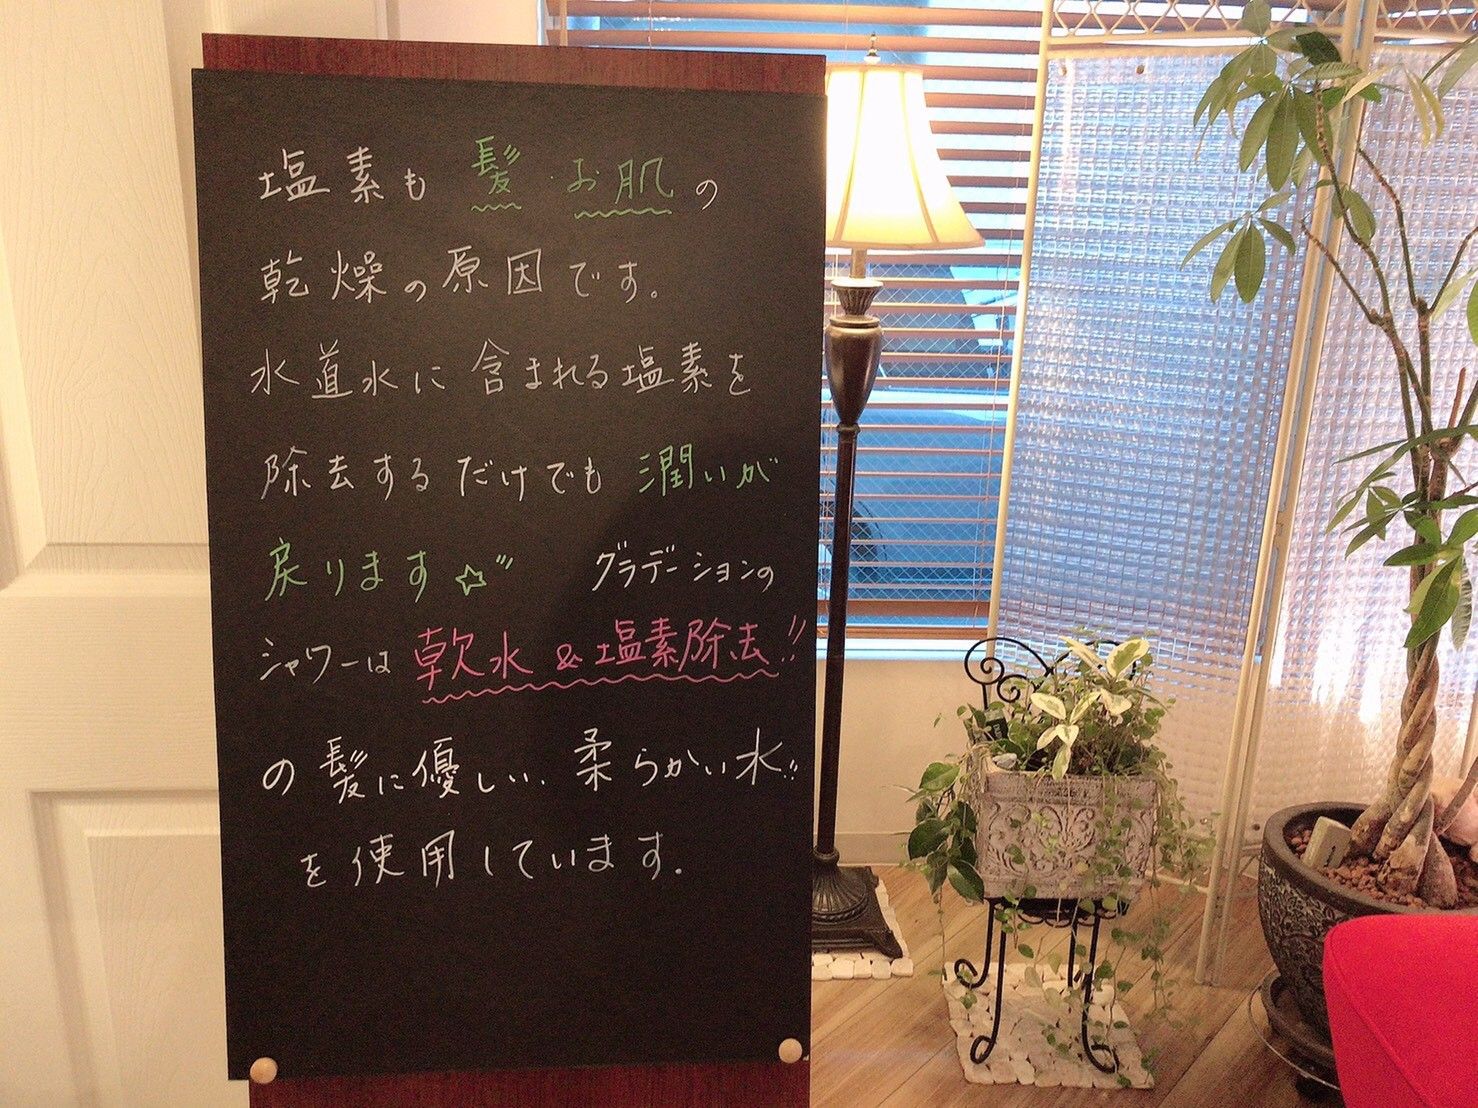 塩素も髪・お肌の
乾燥の原因です。
水道水に含まれる塩素を
除去するだけでも潤いが
戻ります☆〃 グラデーションの
シャワーは軟水&塩素除去!!
の髪に優しい、柔らかい水!!
を使用しています。